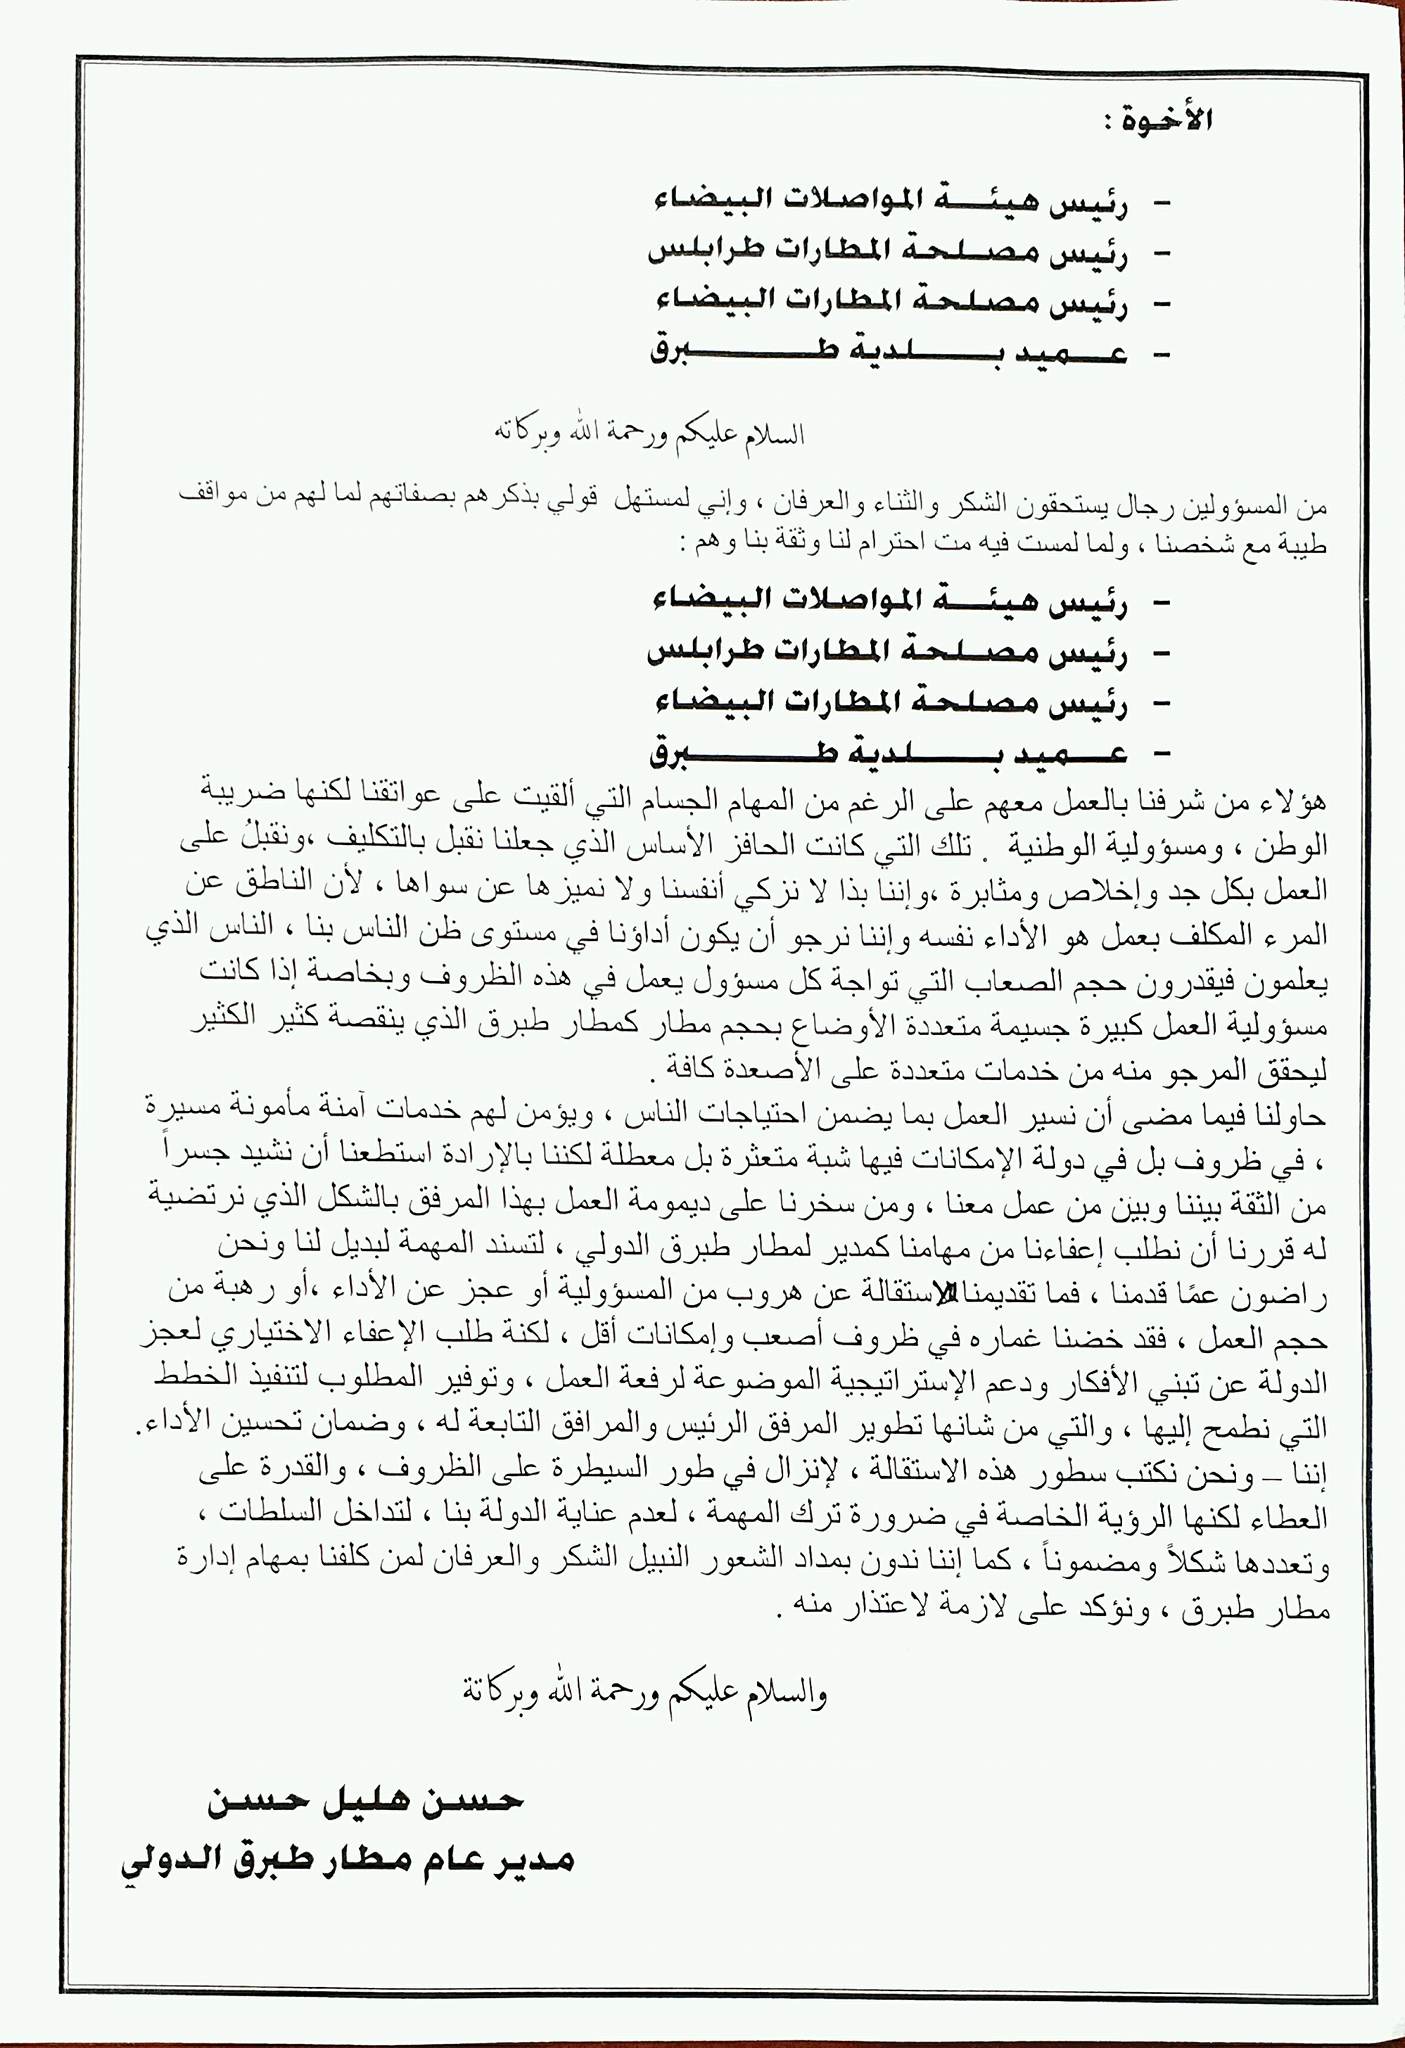 الأخوة :
- رئيس هيئة المواصلات البيضاء
- رئيس مصلحة المطارات طرابلس
- رئيس مصلحة المطارات البيضاء
- عميد بلدية طبرق
السلام عليكم ورحمة الله وبركاته
من المسؤولين رجال يستحقون الشكر والثناء والعرفان ، وإني لمستهل قولي بذكرهم بصفاتهم لما لهم من مواقف
طيبة مع شخصنا ، ولما لمست فيه مت احترام لنا وثقة بنا وهم :
- رئيس هيئة المواصلات البيضاء
- رئيس مصلحة المطارات طرابلس
- رئيس مصلحة المطارات البيضاء
- عميد بلدية طبرق
هؤلاء من شرفنا بالعمل معهم على الرغم من المهام الجسام التي ألقيت على عواتقنا لكنها ضريبة
الوطن ، ومسؤولية الوطنية . تلك التي كانت الحافز الأساس الذي جعلنا نقبل بالتكليف ،ونقبلُ على
العمل بكل جد وإخلاص ومثابرة ،وإننا بذا لا نزكي أنفسنا ولا نميزها عن سواها ، لأن الناطق عن
المرء المكلف بعمل هو الأداء نفسه وإننا نرجو أن يكون أداؤنا في مستوى ظن الناس بنا ، الناس الذي
يعلمون فيقدرون حجم الصعاب التي تواجة كل مسؤول يعمل في هذه الظروف وبخاصة إذا كانت
مسؤولية العمل كبيرة جسيمة متعددة الأوضاع بحجم مطار كمطار طبرق الذي ينقصة كثير الكثير
ليحقق المرجو منه من خدمات متعددة على الأصعدة كافة .
حاولنا فيما مضى أن نسير العمل بما يضمن احتياجات الناس ، ويؤمن لهم خدمات آمنة مأمونة مسيرة
، في ظروف بل في دولة الإمكانات فيها شبة متعثرة بل معطلة لكننا بالإرادة استطعنا أن نشيد جسراً
من الثقة بيننا وبين من عمل معنا ، ومن سخرنا على ديمومة العمل بهذا المرفق بالشكل الذي نرتضية
له قررنا أن نطلب إعفاءنا من مهامنا كمدير لمطار طبرق الدولي ، لتسند المهمة لبديل لنا ونحن
راضون عمًا قدمنا ، فما تقديمنا الاستقالة عن هروب من المسؤولية أو عجز عن الأداء ،أو رهبة من
حجم العمل ، فقد خضنا غماره في ظروف أصعب وإمكانات أقل ، لكنة طلب الإعفاء الاختياري لعجز
الدولة عن تبني الأفكار ودعم الإستراتيجية الموضوعة لرفعة العمل ، وتوفير المطلوب لتنفيذ الخطط
التي نطمح إليها ، والتي من شانها تطوير المرفق الرئيس والمرافق التابعة له ، وضمان تحسين الأداء.
إننا – ونحن نكتب سطور هذه الاستقالة ، لإنزال في طور السيطرة على الظروف ، والقدرة على
العطاء لكنها الرؤية الخاصة في ضرورة ترك المهمة ، لعدم عناية الدولة بنا ، لتداخل السلطات ،
وتعددها شكلاً ومضموناً ، كما إننا ندون بمداد الشعور النبيل الشكر والعرفان لمن كلفنا بمهام إدارة
مطار طبرق ، ونؤكد على لازمة لاعتذار منه .
والسلام عليكم ورحمة الله وبركاتة
حسن هليل حسن
مدير عام مطار طبرق الدولي